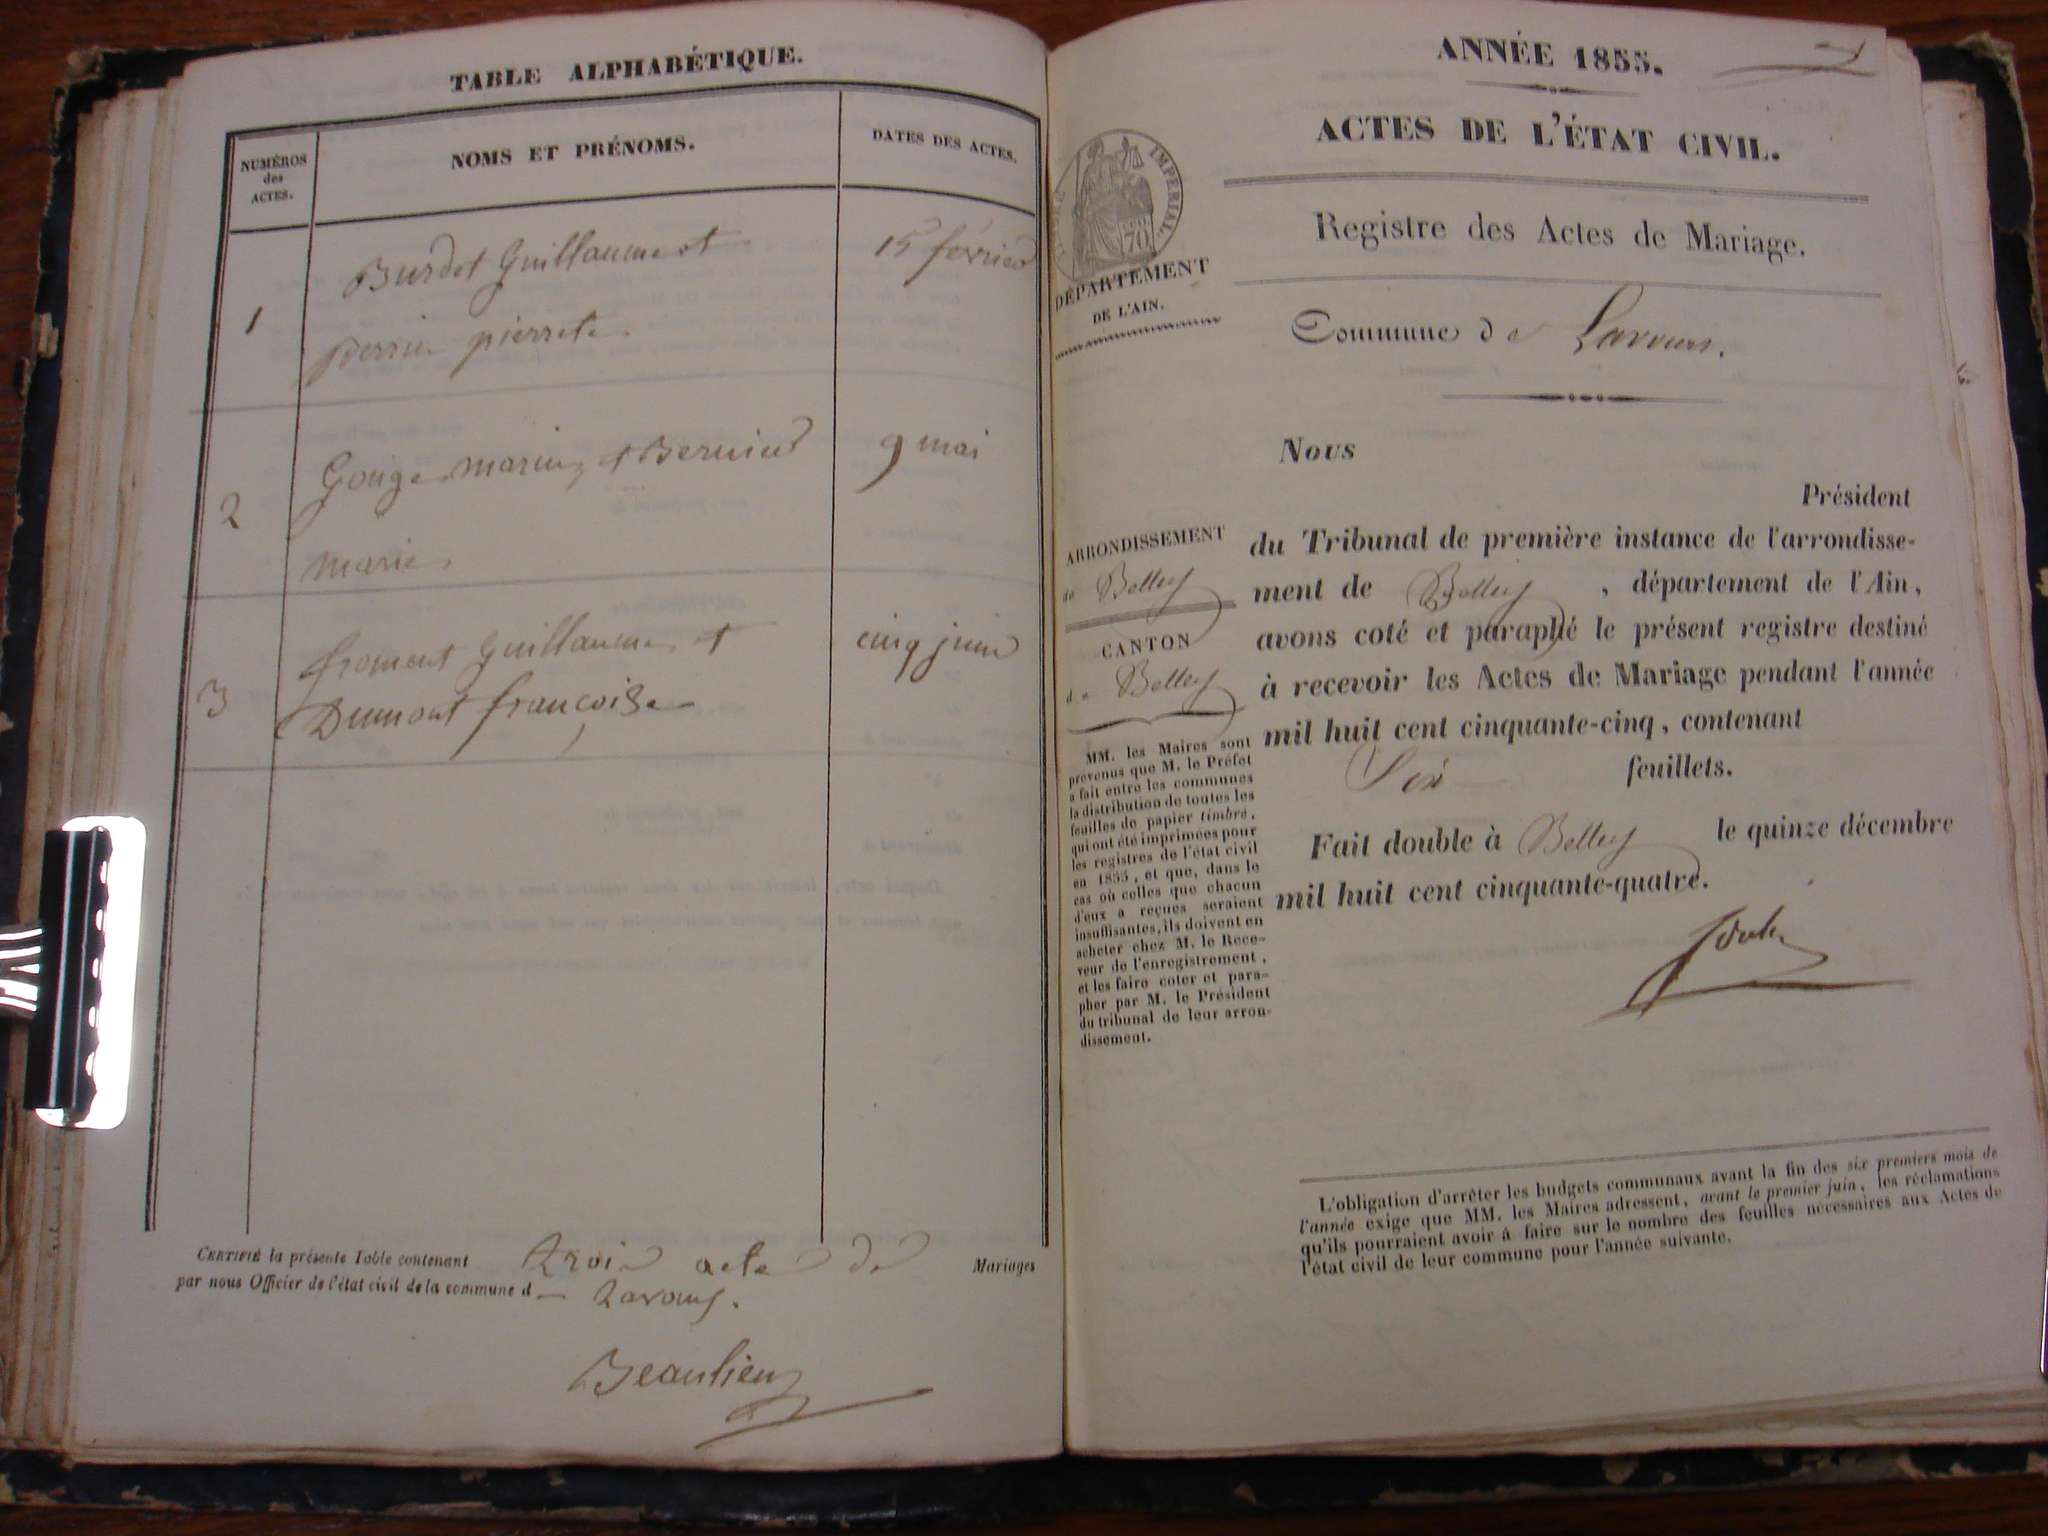 TABLE ALPHABÉTIQUE.
NUMÉROS
des
ACTES.
NOMS ET PRÉNOMS.
DATES DES ACTES.
1
Burdet Guillaume et
perrin pierrette
15 février
2
Gouge marin et Bernier
marie
9 mai
3
froment Guillaume et
Dumont françoise
cinq juin
CERTIFIÉ la présente Table contenant trois acte de Mariages
par nous Officier de l'état civil de la commune d Lavours.
Beaulieu
ANNÉE 1855.
1
ACTES DE L'ÉTAT CIVIL.
TIMBRE IMPÉRIAL.
70
DÉPARTEMENT
DE L'AIN.
Registre des Actes de Mariage.
Commune de Lavours.
ARRONDISSEMENT
de Belley
CANTON
de Belley
MM. les Maires sont
prévenus que M. le Préfet
a fait entre les communes
la distribution de toutes les
feuilles de papier timbré,
qui ont été imprimées pour
les registres de l'état civil
en 1855, et que, dans le
cas où celles que chacun
d'eux a reçues seraient
insuffisantes, ils doivent en
acheter chez M. le Rece-
veur de l'enregistrement,
et les faire coter et para-
pher par M. le Président
du tribunal de leur arron-
dissement.
Nous
Président
du Tribunal de première instance de l'arrondisse-
ment de Belley, département de l'Ain,
avons coté et paraphé le présent registre destiné
à recevoir les Actes de Mariage pendant l'année
mil huit cent cinquante-cinq, contenant
Six feuillets.
Fait double à Belley le quinze décembre
mil huit cent cinquante-quatre.
L'obligation d'arrêter les budgets communaux avant la fin des six premiers mois de
l'année exige que MM. les Maires adressent, avant le premier juin, les réclamations
qu'ils pourraient avoir à faire sur le nombre des feuilles nécessaires aux Actes de
l'état civil de leur commune pour l'année suivante.